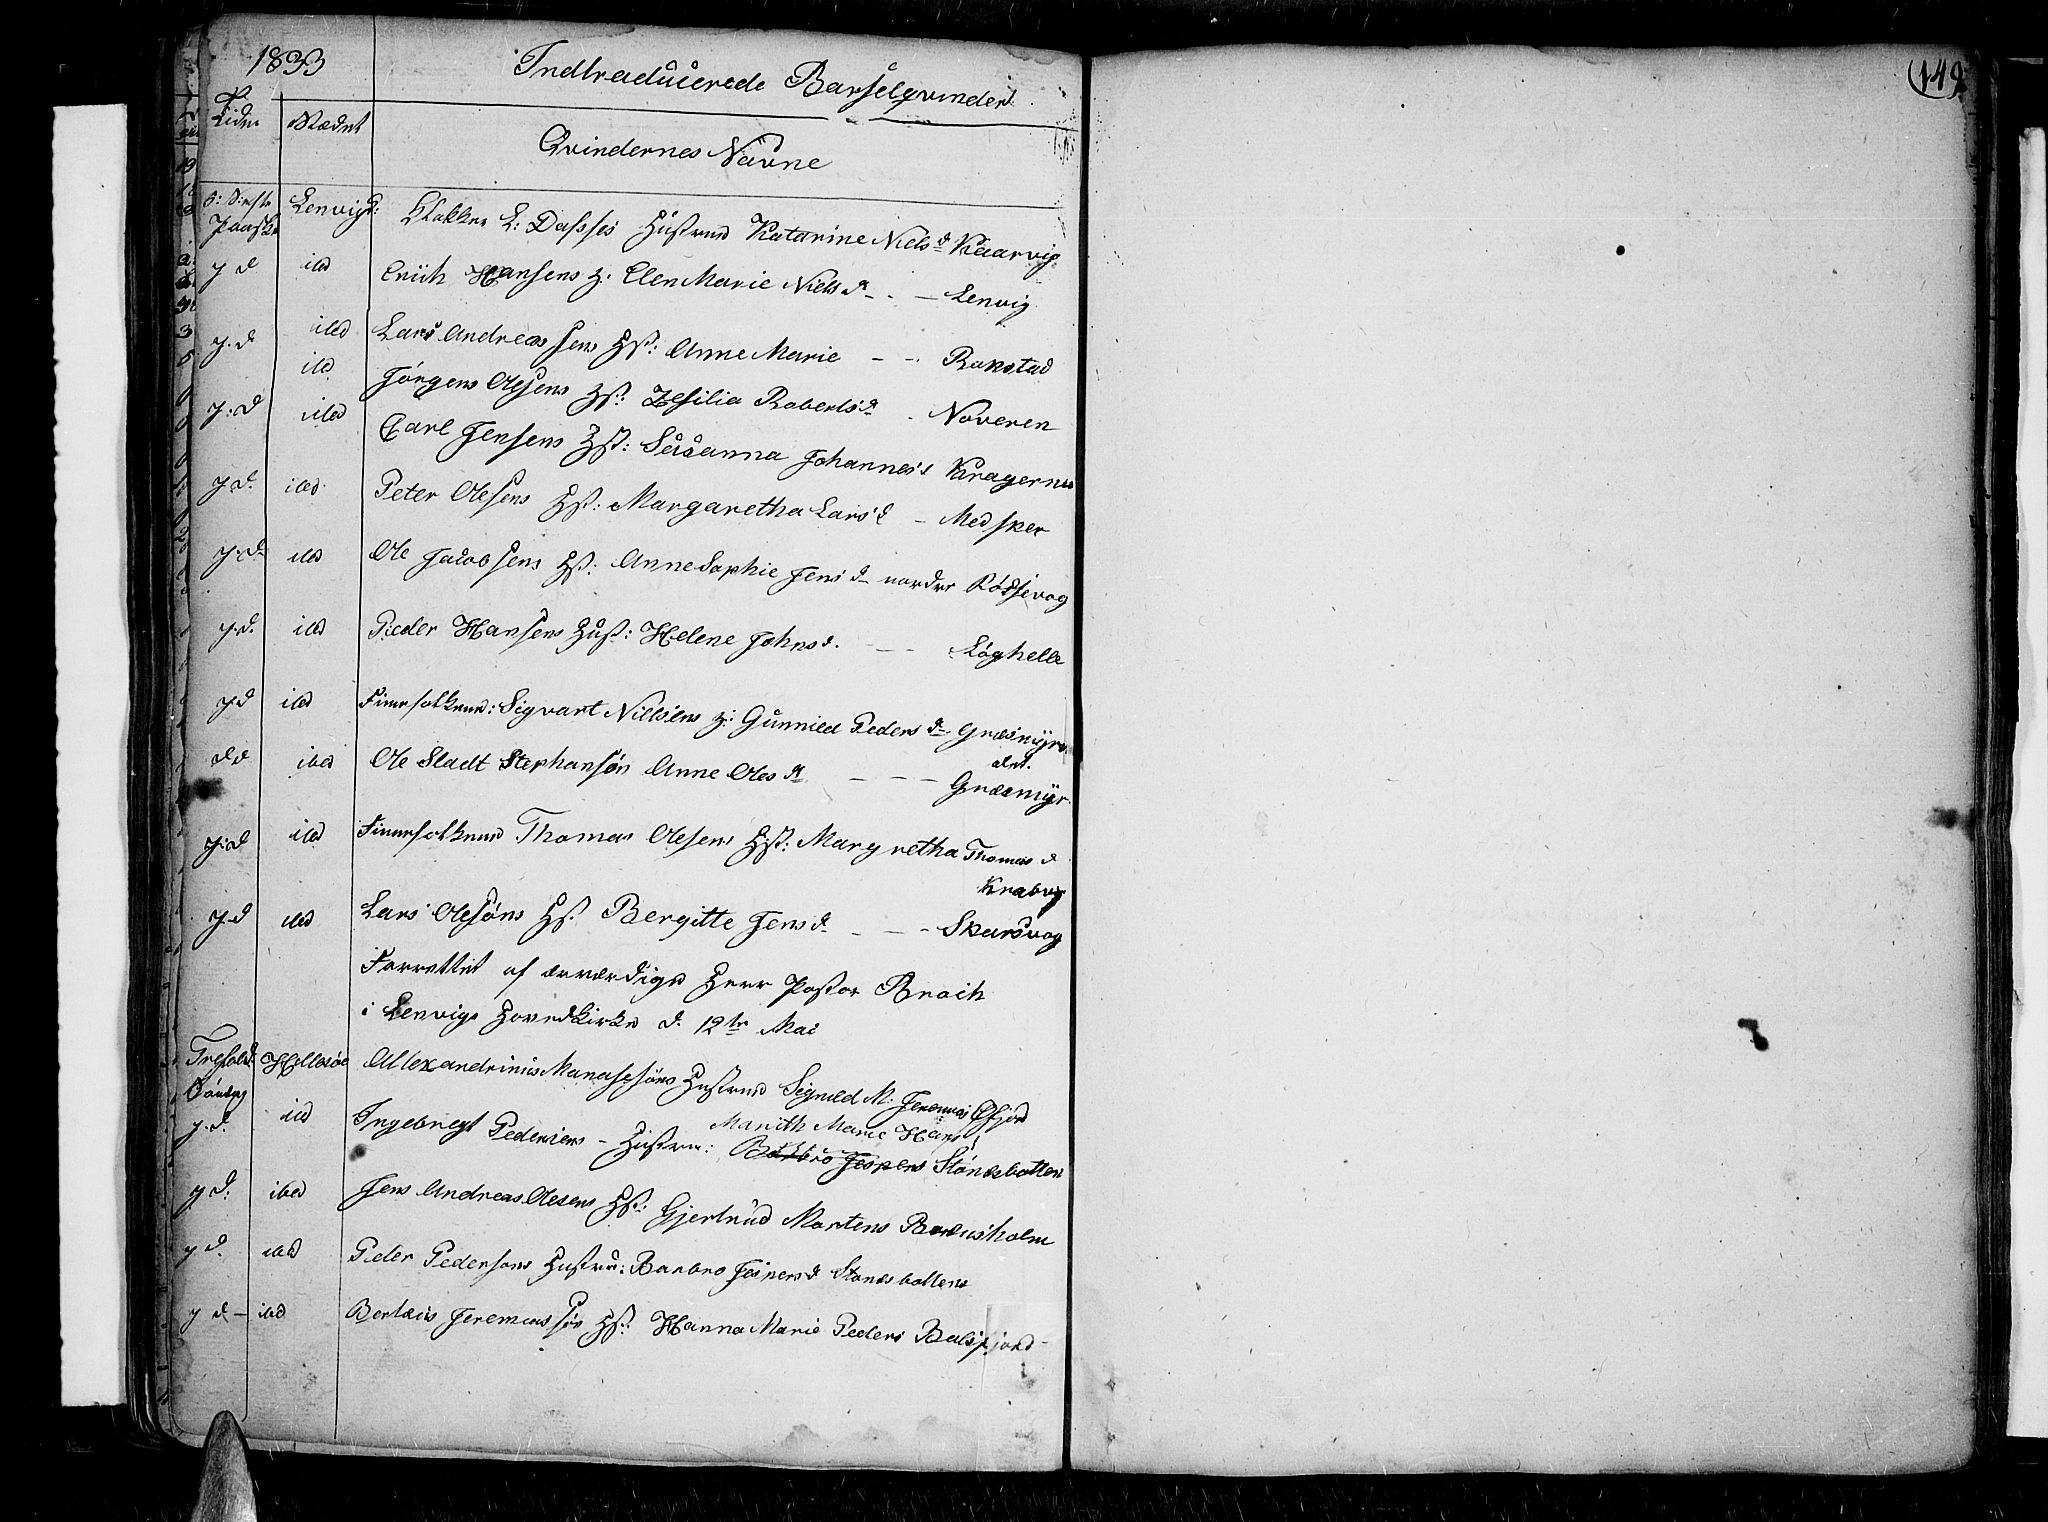 1833
Indtraducerede Barselqvinder
149.
Tiden
Stædet
Qvindernes Navne
5: S: efter Lenvigs: Klokker L: Dasses Hustrue Katarine Niels d Kaarvig
Paaske
y d ibd Erich Hansens H: Elen Marie Niels d - - Lenvig
y. d ibd Lars Andreas sens Hst: Anne Marie - - Bakstad
ibd Jörgens Olesens Hst: Zesilia Roberts d - Noveren
y: d ibd Carl Jensens Hst: Susanna Johannes's Kragernes
y. d. ibd. Peter Olesens Hst: Margaretha Lars d - Medsker
y: d: ibd Ole Jacobsens Hst: Anne Sophie Jens d nordre Rödsevog
y: d. ibd Peder Hansens Hust: Helene Johns d. - - Löghelle
y d ibd Finnefolkene: Sigvart Nielsens H: Gunnild Peders d Græsmyr.
d d ibid Ole Sladt Stephansön Anne Oles d - - - Græsmyr.
y: d ibd Finnefolkene Thomas Olesens Hst: Margretha Thomas d
Knabvg
y. d ibd Lars Olesöns Hst Bergitte Jens d - - - Skarsvog
Forrettet af ærværdige Herr Pastor Broch
i Lenvigs Hovedkirke d. 12te Mai
Trefold: Hellesöe Allexandrinus Manasesöns Hustrue Signild M: Jeremias Öfjord
Söndag
Marith Marie Hans
y. d. ibd Ingebregt Pedersens - Hustru: Barbro Jespers Stönesbotten
y d: ibid Jens Andreas Olesens Hst: Gjertrud Mortens Barusholm
y d. ibid Peder Pedersons Hustru: Barbro Jespers d Stonesbottens
y d - ibd Bertæus Jeremias sön Hst: Hanna Marie Peders Balsfjord -